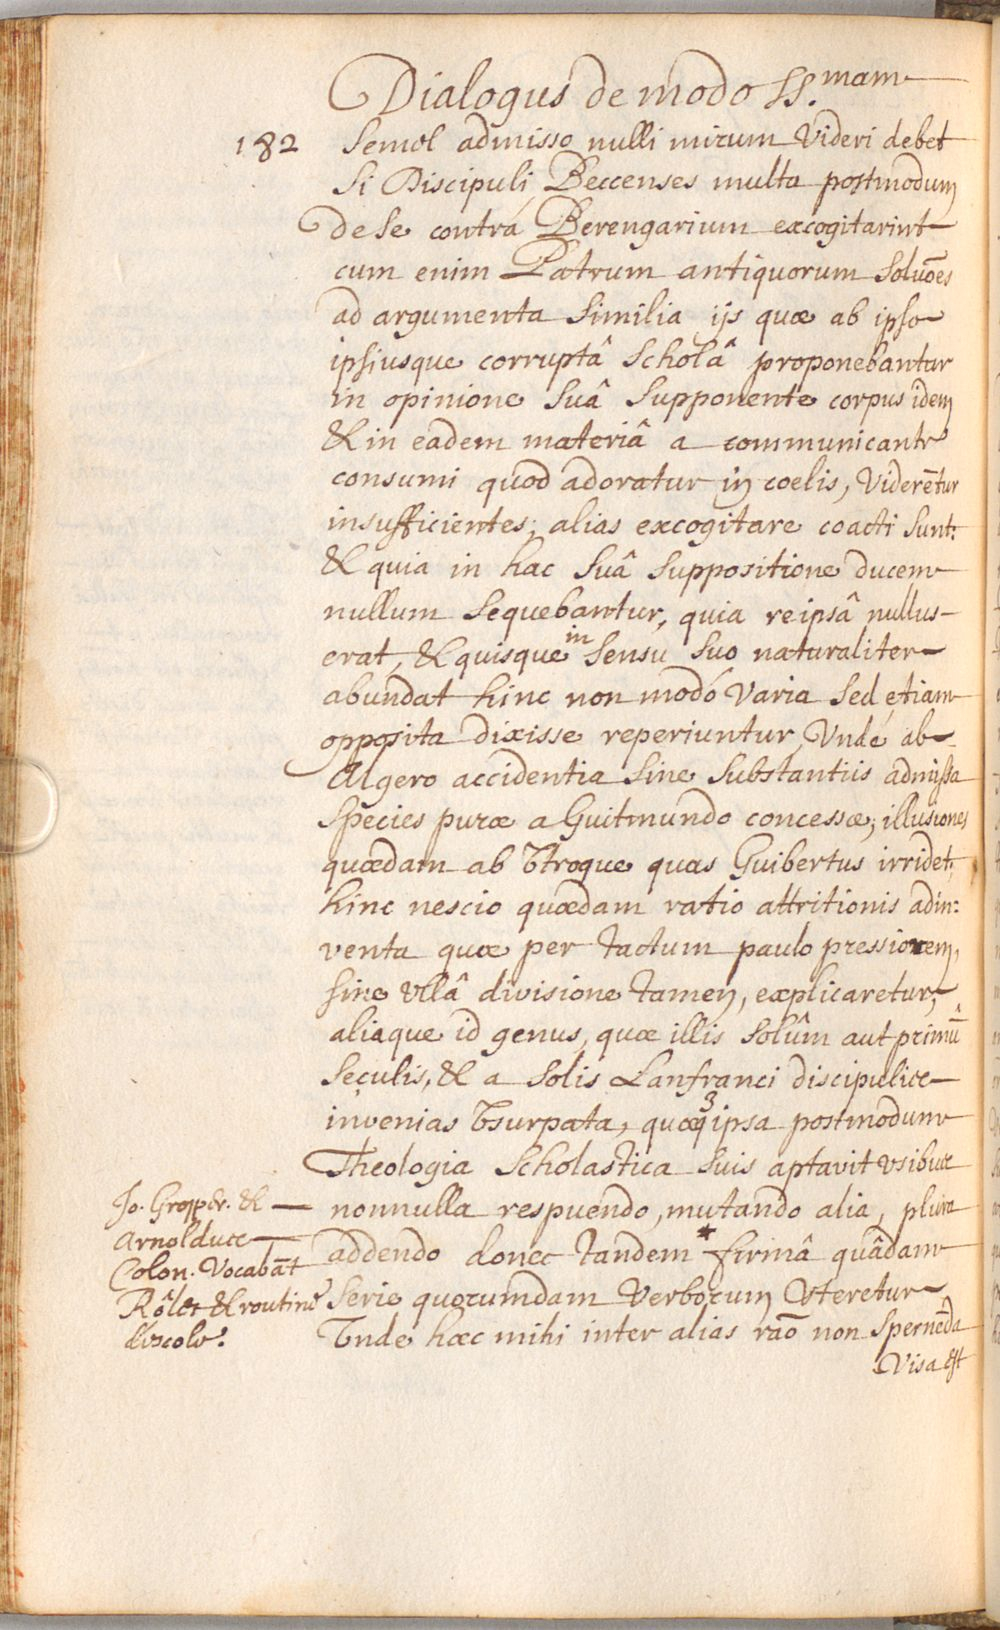 Dialogus de modo SS.mam
182 Semel admisso nulli mirum Videri debet
Si Discipuli Beccenses multa postmodum
de Se contrá Berengarium excogitarint
cum enim Patrum antiquorum Soluōes
ad argumenta Similia ijs quæ ab ipso
ipsiusque corruptâ Scholâ proponebantur
in opinione Suâ Supponente corpus idem
& in eadem materiâ a communicante
consumi quod adoratur in coelis, Viderētur
insufficientes; alias excogitare coacti Sunt:
& quia in hac Suâ Suppositione ducem
nullum Sequebantur, quia reipsâ nullus
erat, & quisque in Sensu Suo naturaliter
abundat hinc non modó Varia Sed etiam
opposita dixisse reperiuntur, Vndé ab
Algero accidentia Sine Substantiis admissa
Species puræ a Guitmundo concessæ; illusiones
quædam ab Vtroque quas Guibertus irridet;
hinc nescio quædam ratio attritionis adin:
venta quæ per tactum paulo pressiorem,
sine vllâ divisione tamen, explicaretur;
aliaque id genus, quæ illis Solûm aut primū
Seculis, & a Solis Lanfranci discipulis
invenias Vsurpata, quæq3 ipsa postmodum
Theologia Scholastica Suis aptavit vsibus
nonnulla respuendo, mutando alia, plura
addendo donec tandem * firmâ quâdam
Serie quorumdam Verborum Vteretur
Vnde hæc mihi inter alias rāo non Spernēda
Visa est
Jo. Gropper. &
Arnoldus
Colon. Vocabāt
Rôles & routine
d'escole.